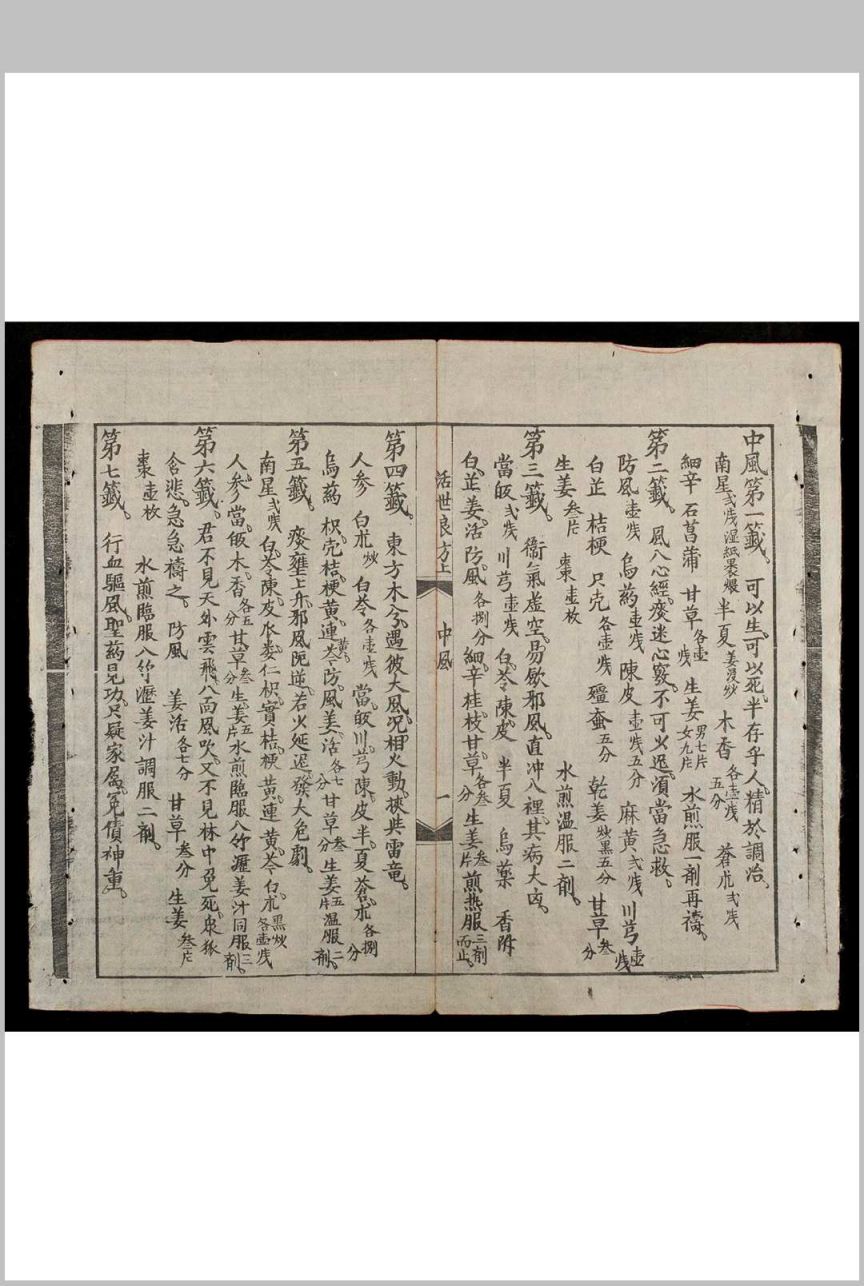 中風第一籤。可以生。可以死。半存乎人。精於調治。
南星弍戋湿紙裹煨 半夏姜浸炒 木香各壹戋五分 蒼朮弍戋
細辛 石菖蒲 甘草各壹戋 生姜男七片女九片 水煎服一剤再禱。
第二籤。風入心經。痰迷心竅。不可火迟。湏當急救。
防風壹戋 烏葯壹戋 陳皮壹戋五分 麻黄弍戋 川芎壹戋
白芷 桔梗 只売各壹戋 殭蚕五分 乾姜炒黑五分 甘草叁分
生姜叁片 棗壹枚 水煎温服二剤。
第三籤。衛氣虚空。易飲邪風。直冲入裡。其病大凶。
當皈弍戋 川芎壹戋 白苓 陳皮 半夏 烏藥 香附
白芷 姜活 防風各捌分 細辛 桂枝 甘草各叁分 生姜叁片 煎热服三剤而止。
活世良方上 中風 一
第四籤。東方木兮。遇彼大風。况相火動。挾共雷竜。
人参 白朮炒 白苓各壹戋 當皈 川芎 陳皮 半夏 蒼朮各捌分
烏葯 枳壳 桔梗 黄連 黄芩 防風 姜活各七分 甘草叁分 生姜五片 温服二剤。
第五籤。痰壅上升。邪風阨逆。若火延迟。發大危劇。
南星弍戋 白苓 陳皮 瓜蒌仁 枳實 桔梗 黄連 黄芩 白朮黑炒各壹戋
人参 當皈 木香各五分 甘草叁分 生姜五片 水煎臨服入竹瀝姜汁同服三剤。
第六籤。君不見天外雲飛。八面風吹。又不見林中兔死。衆狐
含悲。急急禱之。防風 姜活各七分 甘草叁分 生姜叁片
棗壹枚 水煎臨服入竹瀝姜汁調服二剤。
第七籤。行血驅風。聖葯見功。只疑家属。冤債神重。